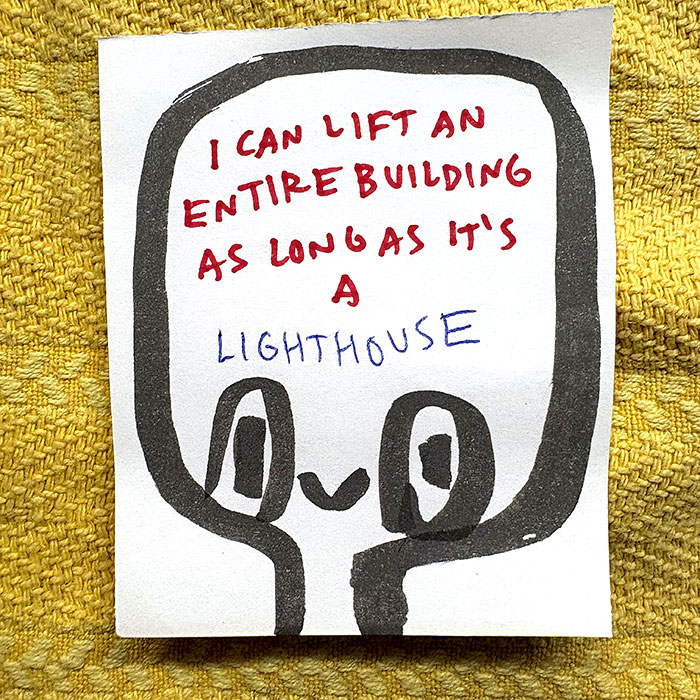 I CAN LIFT AN
ENTIRE BUILDING
AS LONG AS IT'S
A
LIGHTHOUSE